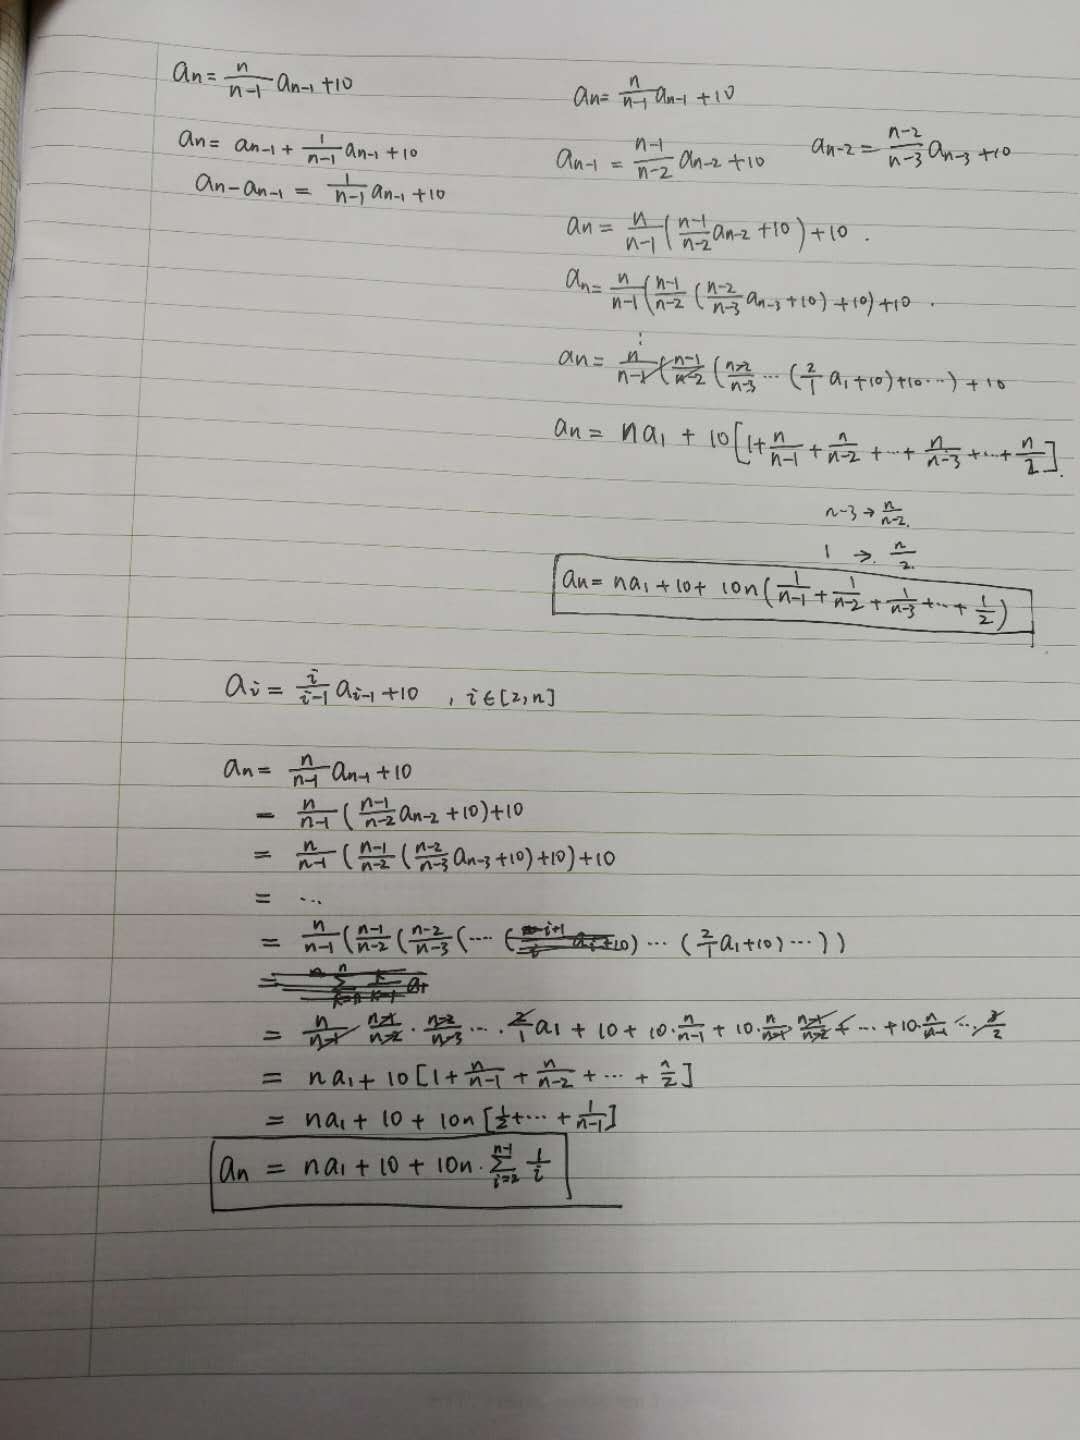 an = n/(n-1) an-1 + 10
an = an-1 + 1/(n-1) an-1 + 10
an - an-1 = 1/(n-1) an-1 + 10
an = n/(n-1) an-1 + 10
an-1 = (n-1)/(n-2) an-2 + 10    an-2 = (n-2)/(n-3) an-3 + 10
an = n/(n-1) ( (n-1)/(n-2) an-2 + 10 ) + 10 .
an = n/(n-1) ( (n-1)/(n-2) ( (n-2)/(n-3) an-3 + 10 ) + 10 ) + 10 .
⋮
an = n/(n-1) ( (n-1)/(n-2) ( (n-2)/(n-3) ⋯ ( 2/1 a1 + 10 ) + 10 ⋯ ) + 10
an = na1 + 10 [ 1 + n/(n-1) + n/(n-2) + ⋯ + n/(n-3) + ⋯ + n/2 ] .
n-3 → n/(n-2) .
1 → . n/2 .
an = na1 + 10 + 10n ( 1/(n-1) + 1/(n-2) + 1/(n-3) + ⋯ + 1/2 )
ai = i/(i-1) ai-1 + 10 , i∈[2,n]
an = n/(n-1) an-1 + 10
= n/(n-1) ( (n-1)/(n-2) an-2 + 10 ) + 10
= n/(n-1) ( (n-1)/(n-2) ( (n-2)/(n-3) an-3 + 10 ) + 10 ) + 10
= ⋯
= n/(n-1) ( (n-1)/(n-2) ( (n-2)/(n-3) ( ⋯ ( ) ⋯ ( 2/1 a1 + 10 ) ⋯ ) )
= n/(n-1) · (n-1)/(n-2) · (n-2)/(n-3) ⋯ 2/1 a1 + 10 + 10 · n/(n-1) + 10 · n/(n-1) · (n-1)/(n-2) + ⋯ + 10 · n/(n-1) ⋯ 3/2
= na1 + 10 [ 1 + n/(n-1) + n/(n-2) + ⋯ + n/2 ]
= na1 + 10 + 10n [ 1/2 + ⋯ + 1/(n-1) ]
an = na1 + 10 + 10n · ∑_{i=2}^{n-1} 1/i